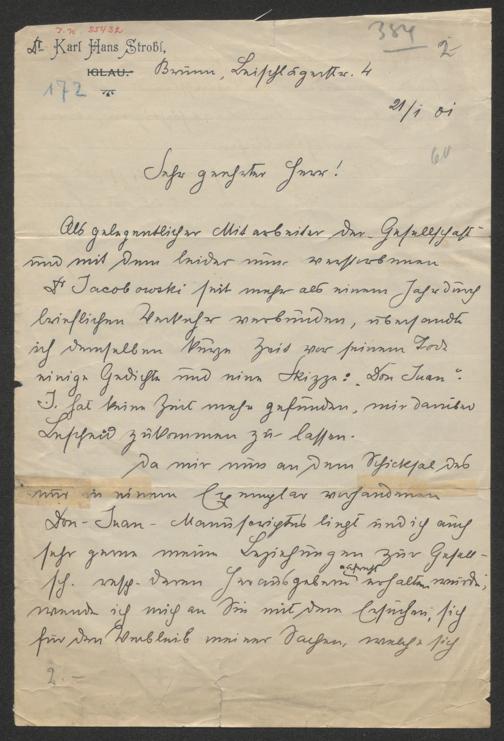 J. N. 55432
384
2
Dr. Karl Hans Strobl,
IGLAU.
Brünn, Leischlägerstr. 4
172
21/I 01
60
Sehr geehrter Herr!
Als gelegentlicher Mitarbeiter der „Gesellschaft“
und mit dem leider nun verstorbenen
Dr Jacobowski seit mehr als einem Jahr durch
brieflichen Verkehr verbunden, übersandte
ich demselben kurze Zeit vor seinem Tode
einige Gedichte und eine Skizze: „Don Juan“.
J. hat keine Zeit mehr gefunden, mir darüber
Bescheid zukommen zu lassen.
Da mir nun an dem Schicksal des
nur in einem Exemplar vorhandenen
Don-Juan-Manuscriptes liegt und ich auch
sehr gerne meine Beziehungen zur Gesell-
sch. resp. deren Herausgebern aufrecht erhalten würde,
wende ich mich an Sie mit dem Ersuchen, sich
für den Verbleib meiner Sachen, welche sich
2.-